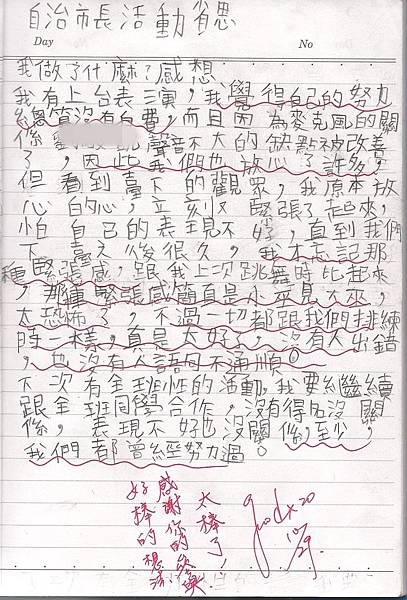 自治市長活動省思
Day
No
我做了什麼?感想
我有上台表演,我覺得自己的努力
總算沒有白費,而且因為麥克風的關
係 聲音不大的缺點被改善
了,因此我們也放心了許多,
但看到臺下的觀眾,我原本放
心的心,立刻又緊張了起來,
怕自己的表現不好,直到我們
下臺之後很久,我才忘記那
種緊張感,跟我上次跳舞時比起來
,那種緊張感簡直是小巫見大巫,
太恐怖了,不過一切都跟我們排練
時一樣,真是太好了,沒有人出錯
,也沒有人語句不通順。
下次有全班性的活動,我要繼續
跟全班同學合作,沒有得名沒關
係,表現不好也沒關係,至少,
我們都曾經努力過。
太棒了,
感謝你的
好棒的想法
good x 20
10/29